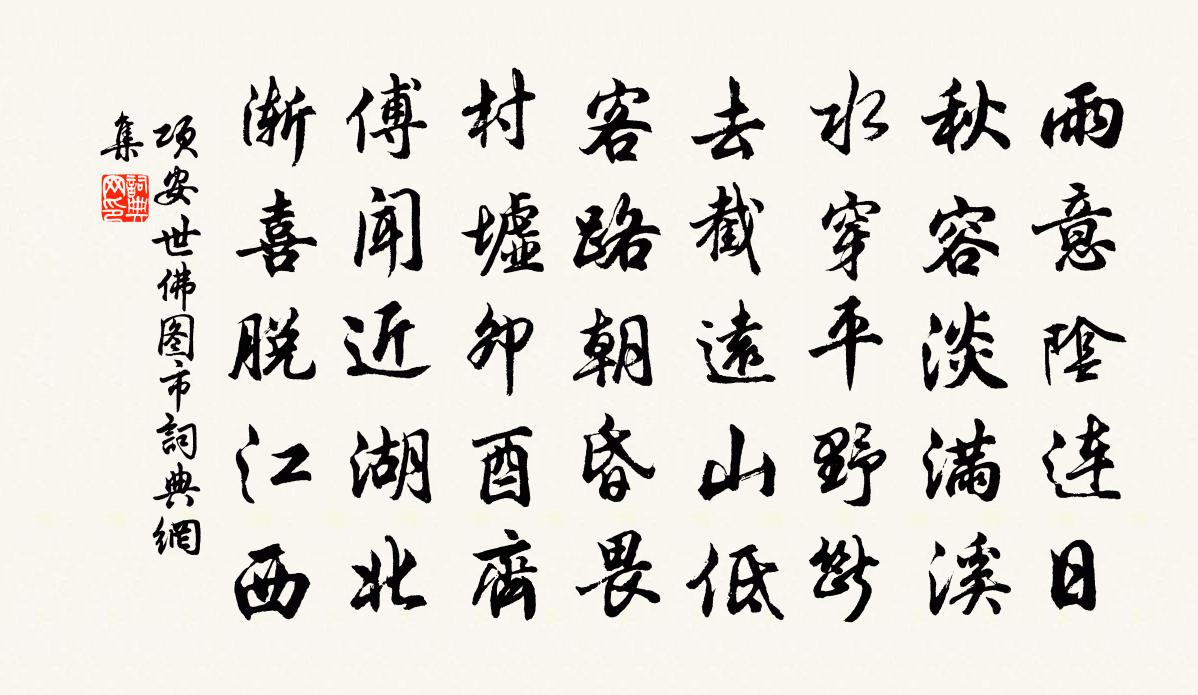 雨意陰連日
秋容淡滿溪
水穿平野斷
去截遠山低
客路朝昏畏
村墟卯酉齊
傳聞近湖北
漸喜脫江西
項安世佛图市詞典網
集
詞典
网印